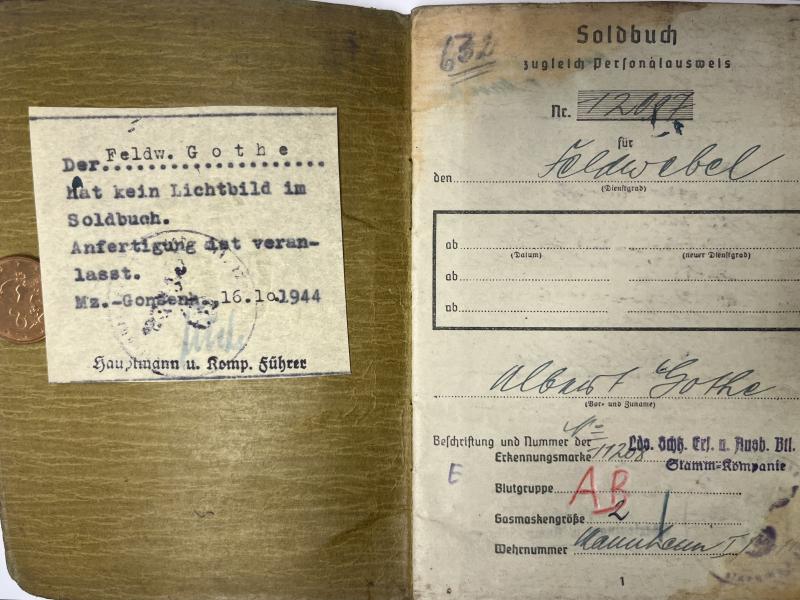 Der Feldw. Gothe
Hat kein Lichtbild im
Soldbuch.
Anfertigung ist veran-
lasst.
Mz.-Gonsenh., 16.10.1944
Hauptmann u. Komp. Führer
632
Soldbuch
zugleich Personalausweis
Nr. 12097
für
den Feldwebel
(Dienstgrad)
ab
(Datum) (neuer Dienstgrad)
ab
ab
Albert Gothe
(Vor- und Zuname)
Beschriftung und Nummer der Lds. Schtz. Ers. u. Ausb. Btl.
Erkennungsmarke 11208 Stamm-Kompanie
E
Blutgruppe AB
Gasmaskengröße 2
Wehrnummer Mannheim I
1